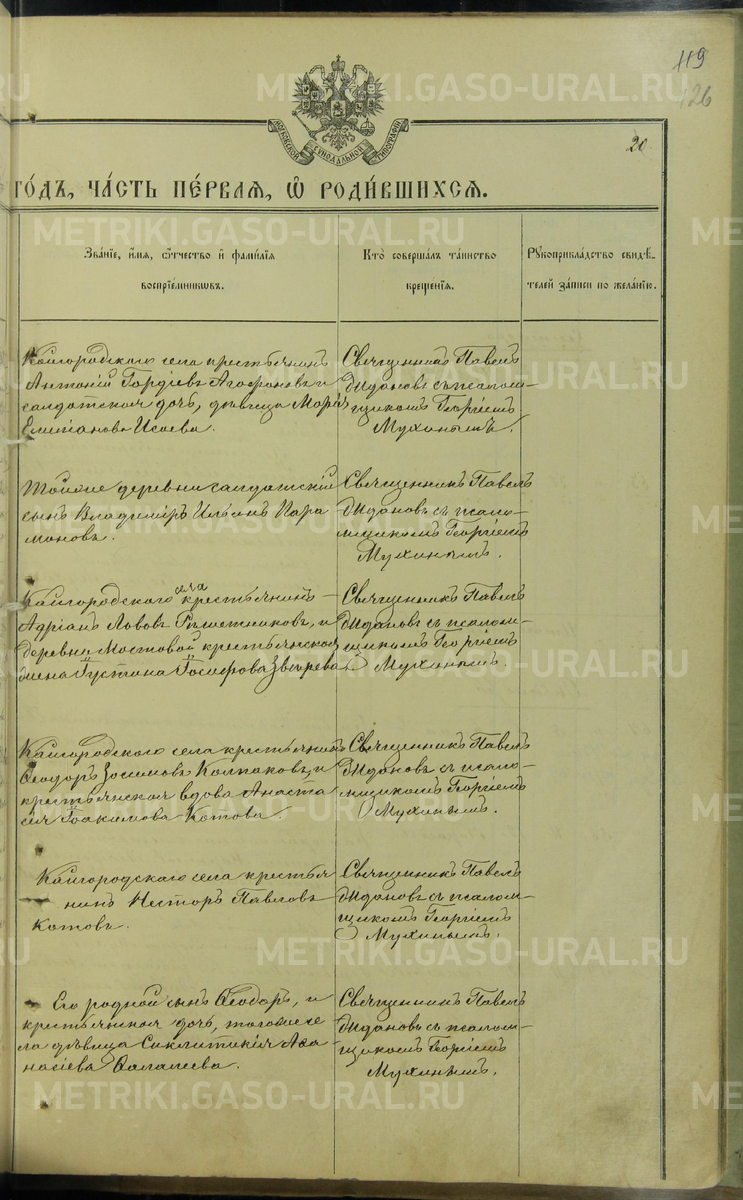 119
126
20
МОСКОВСКОЙ СѴНОДАЛЬНОЙ ТИПОГРАФІИ
ГО́ДЪ, ЧА́СТЬ ПЕ́РВАЯ, Ѿ РОДИ́ВШИХСЯ.
Зва́нїе, и́мя, ѻ́тчество и фами́лїя
воспрїе́мниковъ.
Кто̀ соверша́лъ та́инство
креще́нїя.
Рꙋкоприкла́дство свидѣ́-
телей за́писи по жела́нїю.
Кайгородскаго села крестьянинъ
Антоній Гордіевъ Агафоновъ и
солдатская дочь, дѣвица Марія
Исаева.
Священникъ Павелъ
съ псалом-
щикомъ Георгіемъ
Мухинымъ.
Той же деревни солдатскій
сынъ Владиміръ Ильинъ Пара
моновъ.
Священникъ Павелъ
съ псало-
мщикомъ Георгіемъ
Мухинымъ.
Кайгородского села крестьянинъ
Адріанъ Львовъ Рѣшетниковъ, и
деревни Мостовой крестьянская
жена Іустина Іосифова Звѣрева
Священникъ Павелъ
съ псалом-
щикомъ Георгіемъ
Мухинымъ.
Кайгородского села крестьянинъ
Ѳеодоръ Зосимовъ Колпаковъ, и
крестьянская вдова Анаста
сія Іоакимова Котова.
Священникъ Павелъ
съ псало-
мщикомъ Георгіемъ
Мухинымъ.
Кайгородскаго села крестья
нинъ Несторъ Павловъ
Котовъ.
Священникъ Павелъ
съ псалом-
щикомъ Георгіемъ
Мухинымъ.
Его родной сынъ Ѳеодоръ, и
крестьянская дочь, тогоже се
ла дѣвица Синклитикія Аѳа
насіева
Священникъ Павелъ
съ псалом-
щикомъ Георгіемъ
Мухинымъ.
METRIKI.GASO-URAL.RU